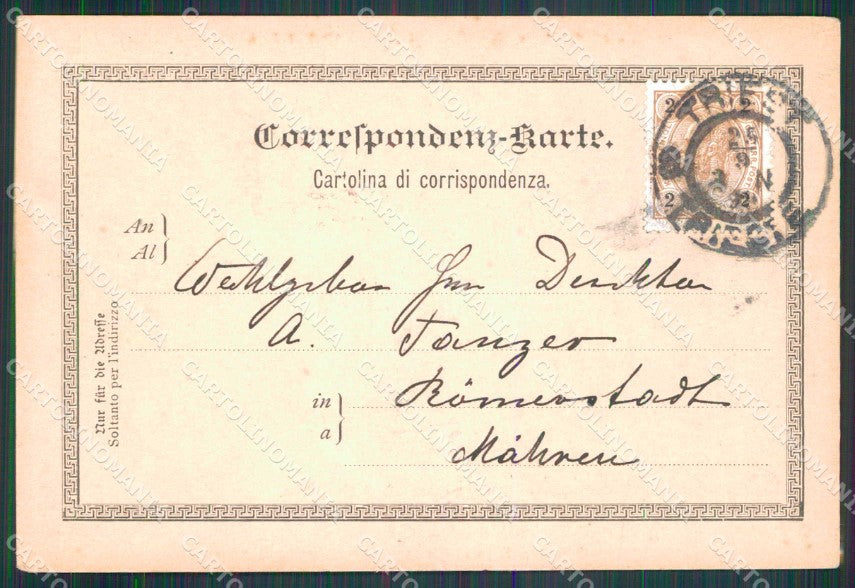 Correspondenz-Karte.
Cartolina di corrispondenza.
2 2
2 2
TRIEST
25
9
3 N
92
TRIESTE
An
Al
Wohlgeboren Herrn Direktor
A. Tanzer
in
a
Römerstadt
Mähren
Nur für die Adresse
Soltanto per l'indirizzo
CARTOLINOMANIA